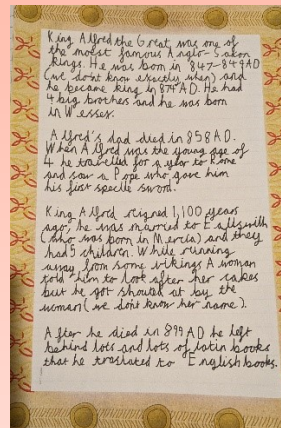 King Alfred the Great was one of
the moest famous Anglo-Saxon
kings. He was born in 847-849AD
(we dont know exectly when) and
he became king in 871 AD. He had
4 big brothes and he was born
in Wessex.
Alfred's dad died in 858AD.
When Alfred was the young age of
4 he travelled for a year to Rome
and saw a Pope who gave him
his first specile sword.
King Alfred reigned 1,100 years
ago, he was married to Ealhswith
(who was born in Mercia) and they
had 5 children. While running
away from some vikings A woman
told him to loot after her cakes
but he got shouted at by the
woman (we dont know her name).
After he died in 899 AD he left
behind lots and lots of latin books
that he traslated to English books.